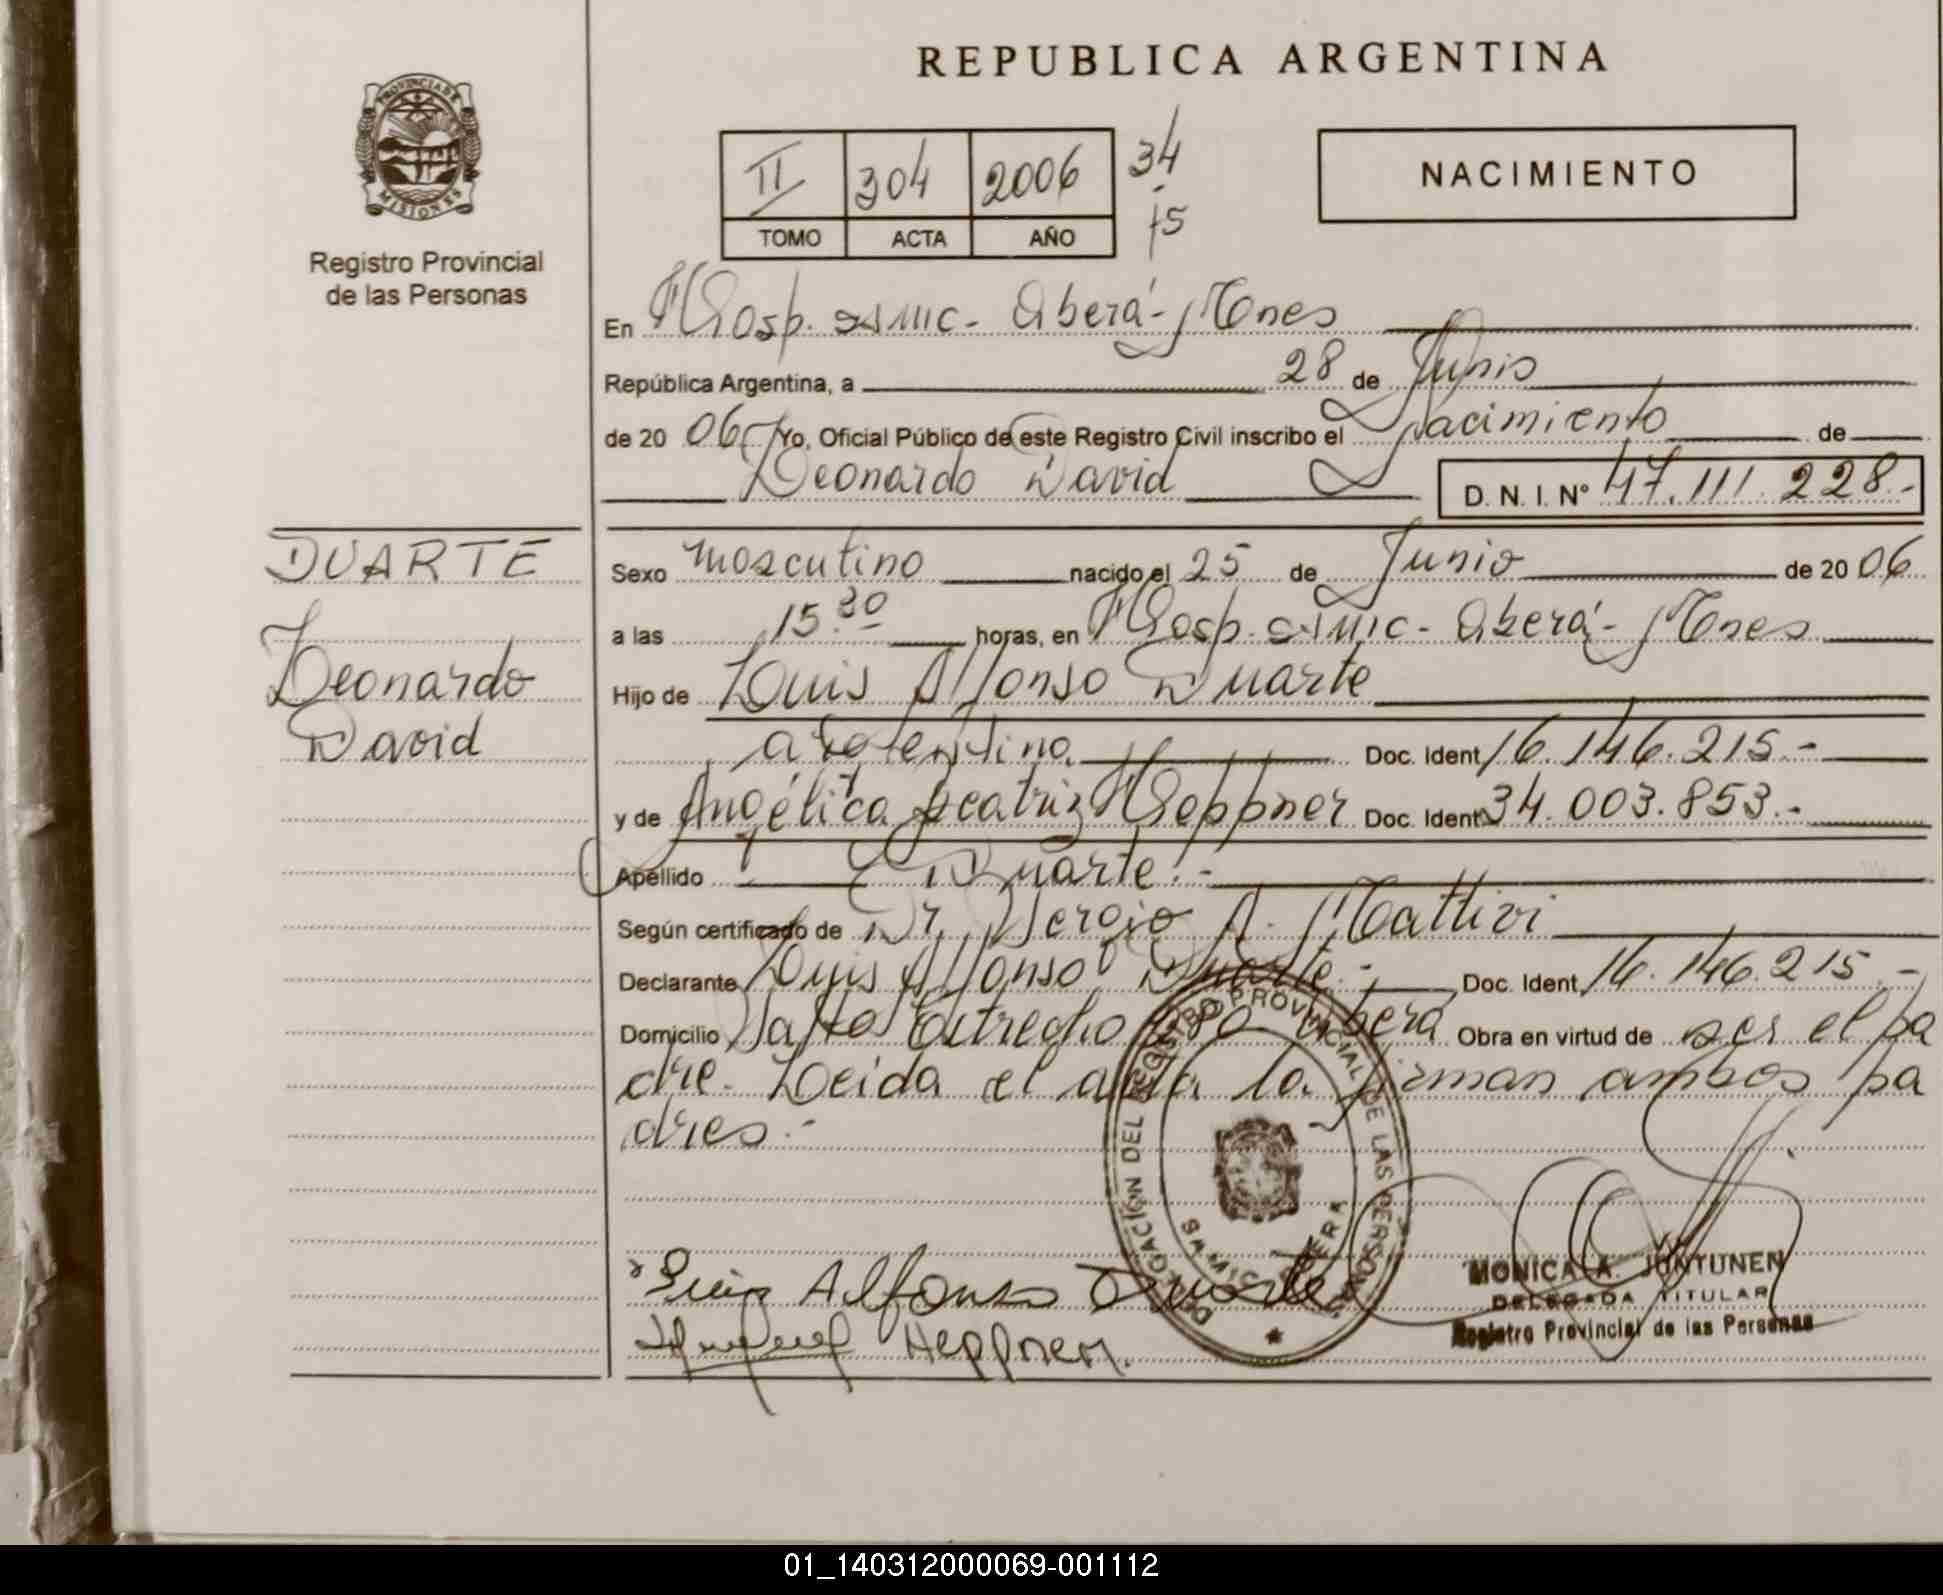 REPUBLICA ARGENTINA
PROVINCIA DE
MISIONES
Registro Provincial
de las Personas
II 304 2006 34
TOMO ACTA AÑO 15
NACIMIENTO
En Hosp. SAMIC - Oberá - Mnes
República Argentina, a 28 de Junio
de 20 06 Yo, Oficial Público de este Registro Civil inscribo el Nacimiento de
Leonardo David D. N. I. Nº 47.111.228.-
DUARTE
Leonardo
David
Sexo masculino nacido el 25 de Junio de 20 06
a las 15.30 horas, en Hosp. SAMIC - Oberá - Mnes
Hijo de Luis Alfonso Duarte
argentino Doc. Ident 16.146.215.-
y de Angélica Beatriz Heppner Doc. Ident 34.003.853.-
Apellido Duarte.-
Según certificado de Dr. Sergio A. Mattivi
Declarante Luis Alfonso Duarte.- Doc. Ident. 16.146.215.-
Domicilio Salto Estrecho Oberá Obra en virtud de ser el pa
dre. Leida el acta la firman ambos pa
dres.-
DELEGACIÓN DEL REGISTRO PROVINCIAL DE LAS PERSONAS
OBERA
Luis Alfonso Duarte
Heppner
MONICA A. JUNTUNEN
DELEGADA TITULAR
Registro Provincial de las Personas
01_140312000069-001112